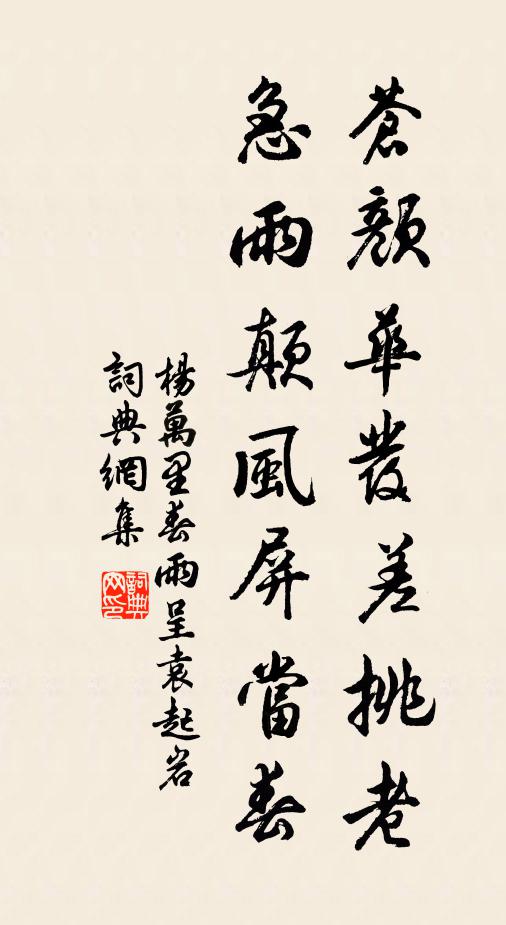 蒼顏華發差挑老
急雨顛風屏當春
楊萬里春雨呈袁起岩
詞典網集
詞典网印